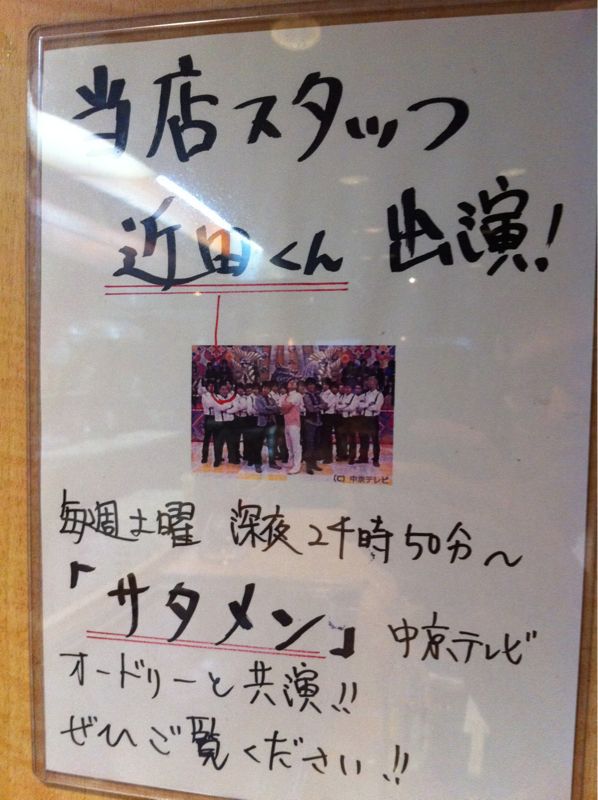 当店スタッフ
近田くん 出演!
(C) 中京テレビ
毎週土曜 深夜24時50分～
「サタメン」 中京テレビ
オードリーと共演!!
ぜひご覧ください!!